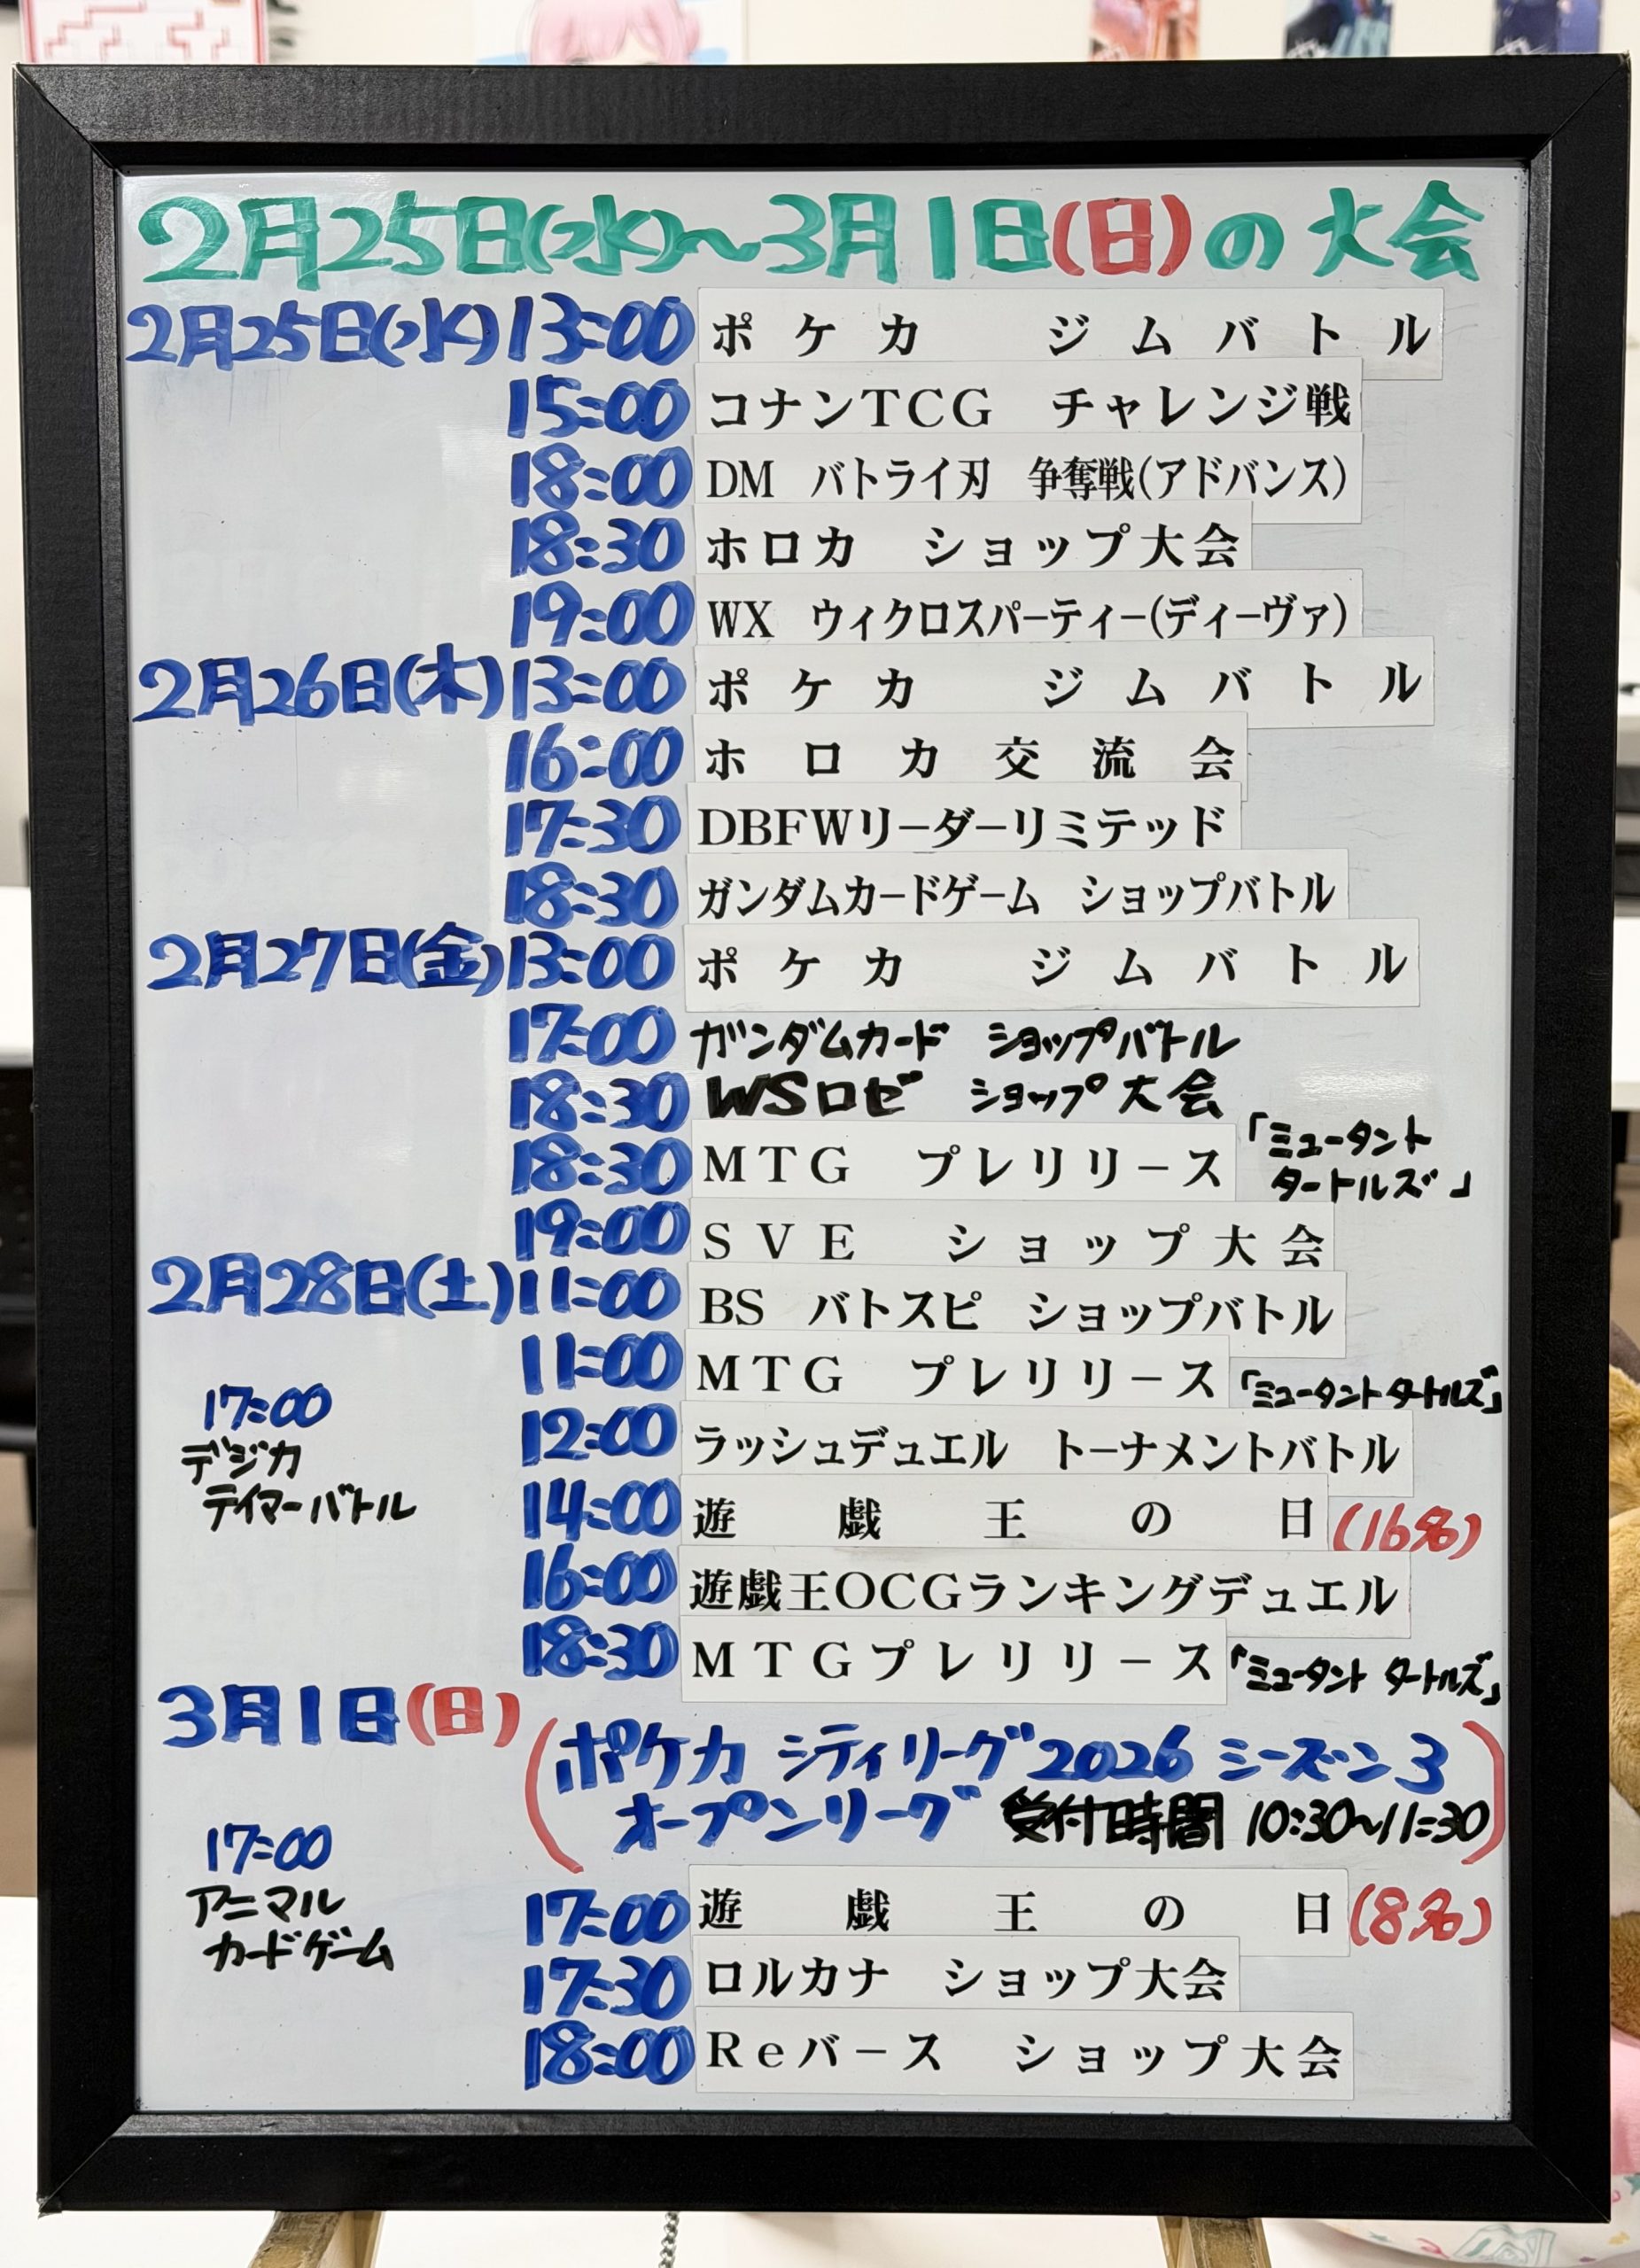 2月25日(水)～3月1日(日)の大会
2月25日(水) 13:00 ポケカ ジムバトル
15:00 コナンTCG チャレンジ戦
18:00 DM バトライ刃 争奪戦(アドバンス)
18:30 ホロカ ショップ大会
19:00 WX ウィクロスパーティー(ディーヴァ)
2月26日(木) 13:00 ポケカ ジムバトル
16:00 ホロカ交流会
17:30 DBFWリーダーリミテッド
18:30 ガンダムカードゲーム ショップバトル
2月27日(金) 13:00 ポケカ ジムバトル
17:00 ガンダムカード ショップバトル
18:30 WSロゼ ショップ大会
18:30 MTG プレリリース 「ミュータント
タートルズ」
19:00 SVE ショップ大会
2月28日(土) 11:00 BS バトスピ ショップバトル
11:00 MTG プレリリース 「ミュータントタートルズ」
12:00 ラッシュデュエル トーナメントバトル
14:00 遊戯王の日 (16名)
16:00 遊戯王OCGランキングデュエル
18:30 MTGプレリリース 「ミュータント タートルズ」
17:00
デジカ
テイマーバトル
3月1日(日)
(ポケカ シティリーグ2026 シーズン3
オープンリーグ 受付時間 10:30～11:30)
17:00 遊戯王の日 (8名)
17:30 ロルカナ ショップ大会
18:00 Reバース ショップ大会
17:00
アニマル
カードゲーム